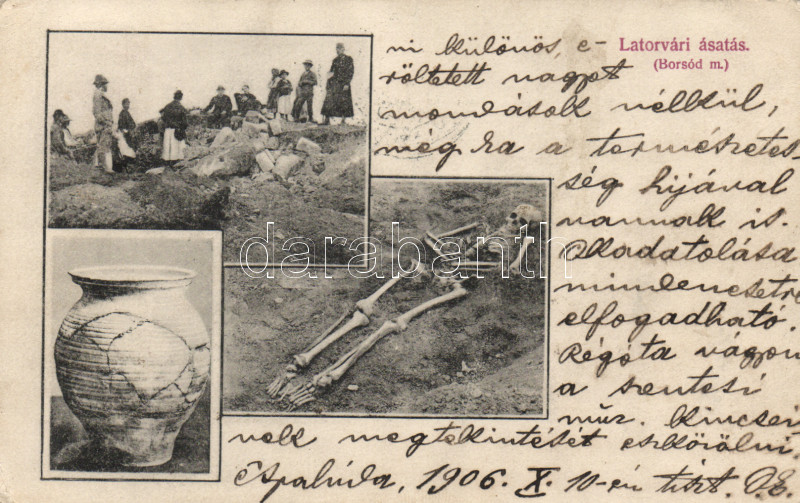 Latorvári ásatás.
(Borsód m.)
ni különös, e-
röltetett nagyot
mondások nélkül,
még ha a természetes-
ség hijával
vannak is.
Akadatolása
mindenesetre
elfogadható.
Régóta vágyom
a szentesi
múz. kincsei-
nek megtekintését eszközölni.
Apahida, 1906. X. 10-én tiszt
darabanth